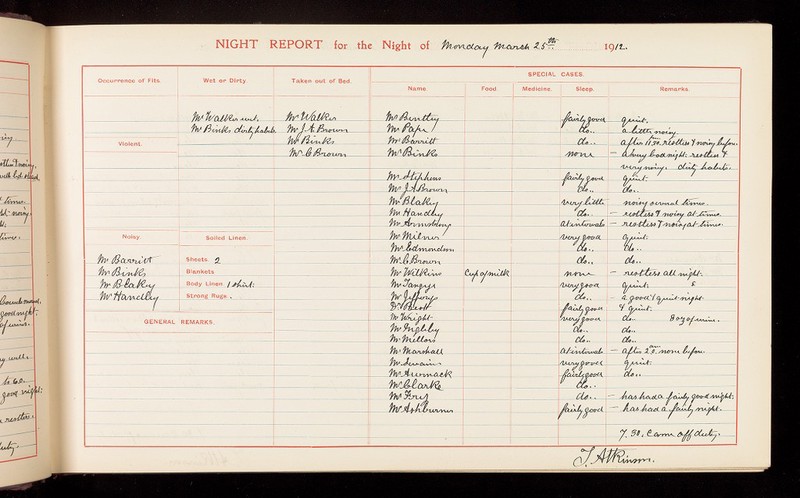 NIGHT REPORT for the Night of Monday March 25th 1912.
Occurrence of Fits.
Wet or Dirty.
Taken out of Bed.
SPECIAL CASES.
Name.
Food.
Medicine.
Sleep.
Remarks.
Mr Walker wet.
Mr Binks dirty habits
Mr Walker
Mr J. A. Brown
Mr Binks
Mr C Brown
Violent.
Noisy.
Mr Barritt
Mr Binks
Mr Blakey
Mr Handley
Soiled Linen.
Sheets. 2
Blankets
Body Linen 1 shirt.
Strong Rugs.
GENERAL REMARKS.
Mr Bentley fairly good quiet.
Mr Pape do.. a little noisy
Mr Barritt do.. after 11.30. restless & noisy before.
Mr Binks none – a very bad night. restless &
very noisy. dirty habits.
Mr Stephens fairly good quiet.
Mr J A Brown do.. do..
Mr Blakey very little noisy several times.
Mr Handley do.. – restless & noisy at times.
Mr at intervals – restless & noisy at times.
Mr Milner very good quiet.
Mr Edmondson do.. do..
Mr C. Brown do.. do..
Mr Wilkins Cup of milk none – restless all night.
Mr very good quiet.
Mr Jefferys do.. – a good & quiet night
fairly good & quiet.
Mr Wright very good do..
Mr Highley do.. do..
Mr Mellors do.. do..
Mr Marshall at intervals – after 2 a.m. none before
Mr Swain very good quiet.
Mr fairly good do..
Mr Clarke do..
Mr Fry do.. – has had a fairly good night.
Mr Ashburner fairly good – has had a fairly night.
7.30. Came off duty.
J. Atkinson.